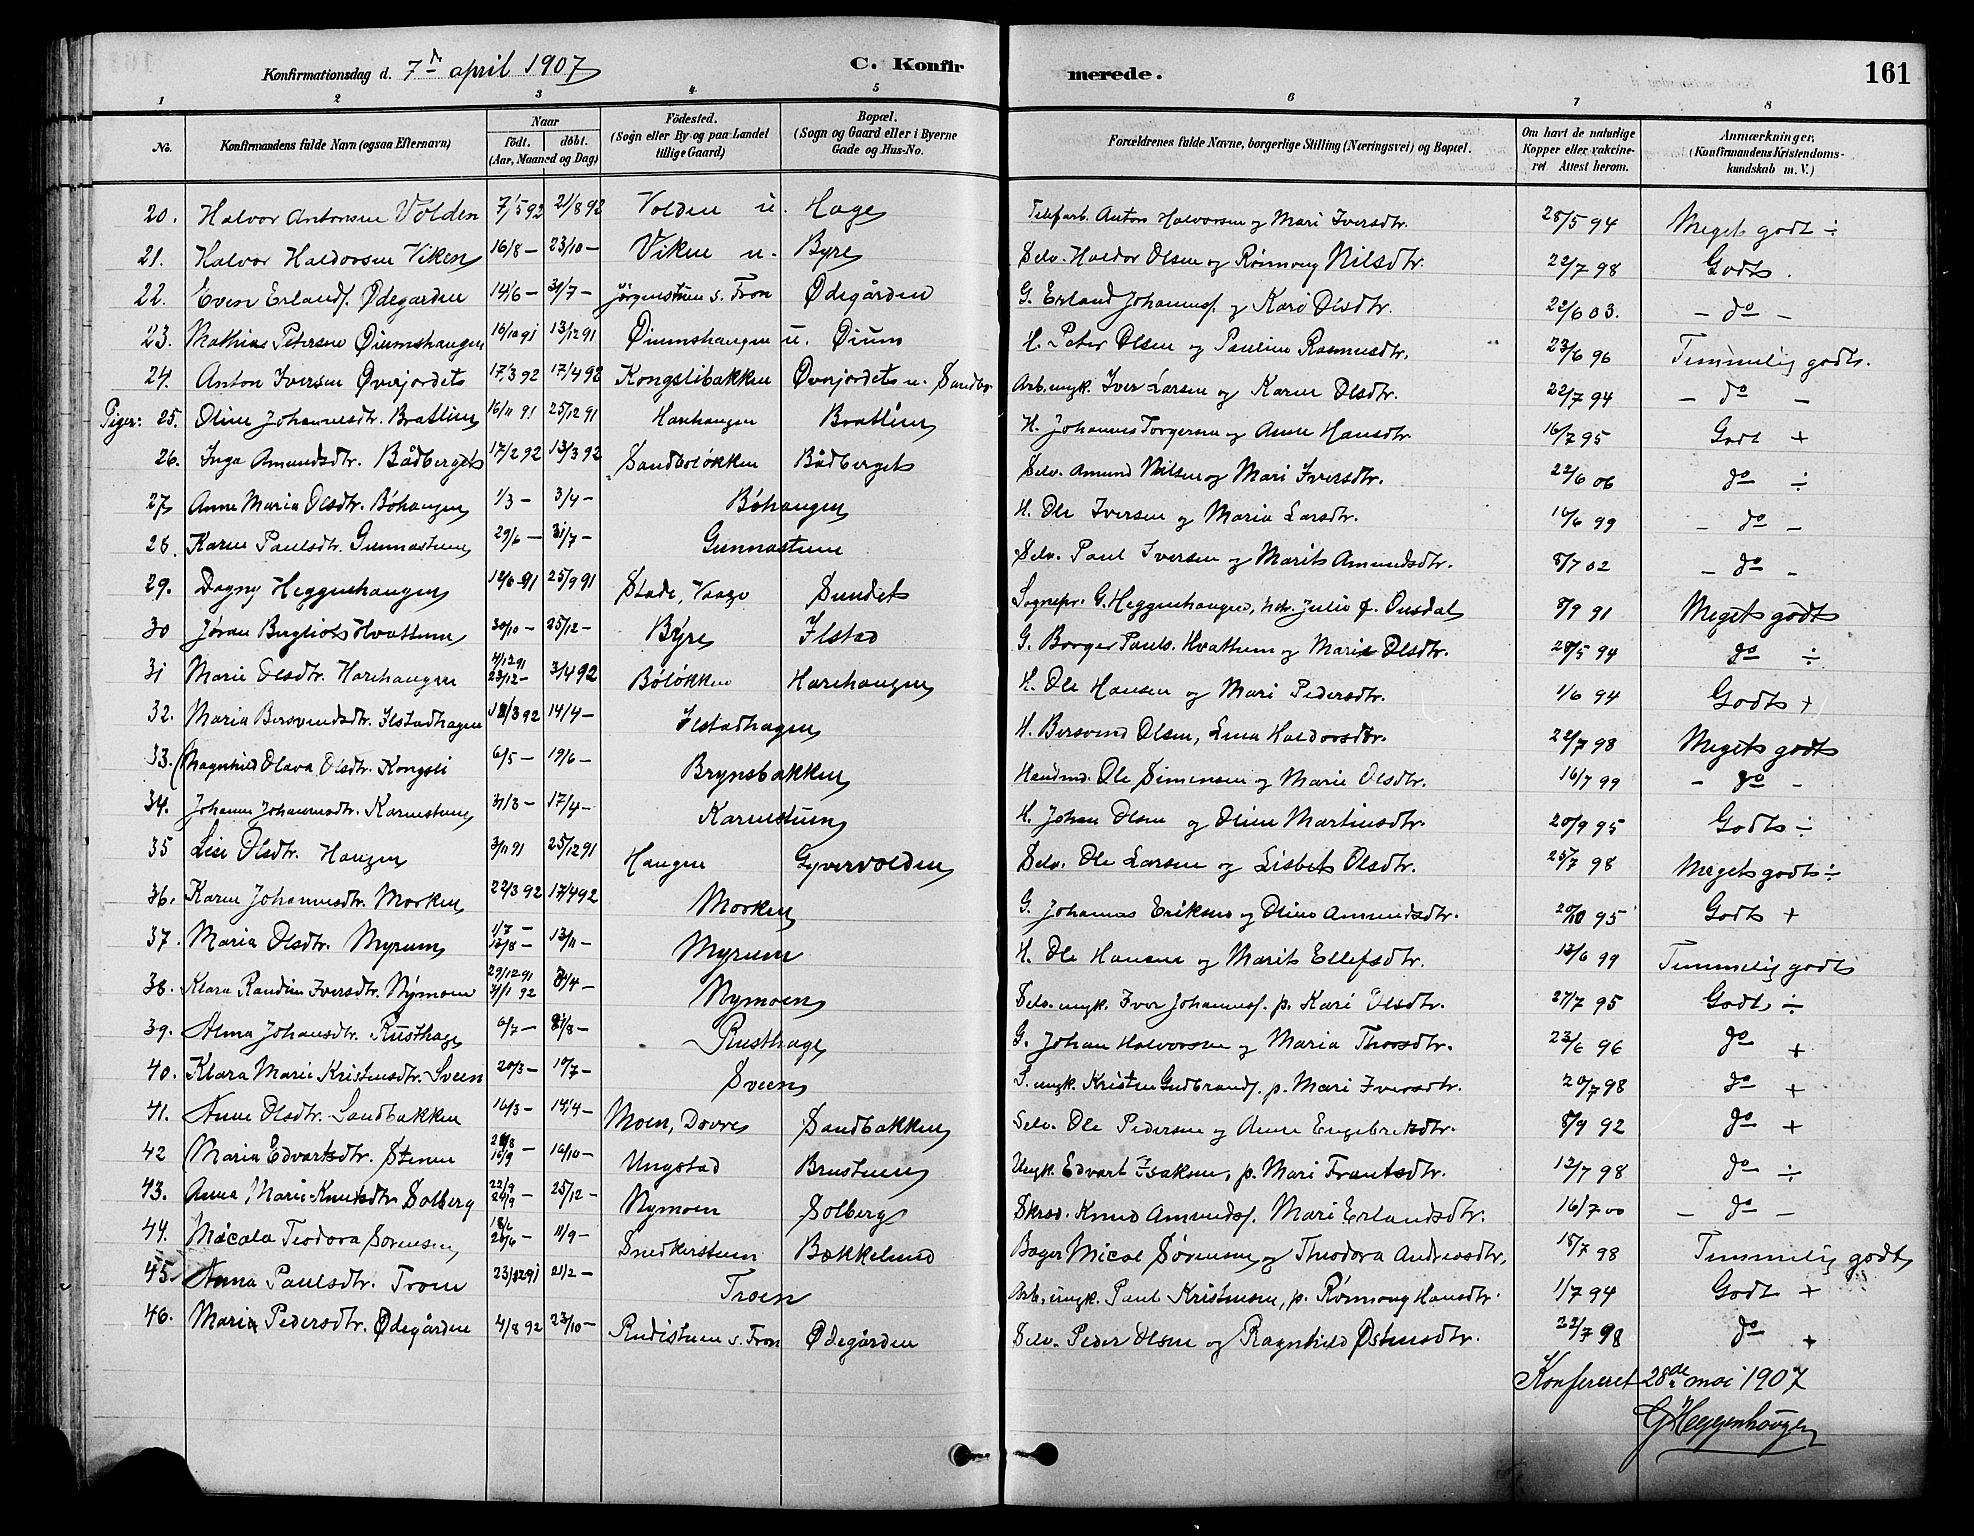 Konfirmationsdag d. 7de april 1907 C. Konfirmerede. 161
1 2 3 4 5 6 7 8
No. Konfirmandens fulde Navn (ogsaa Efternavn) Naar födt. döbt. (Aar, Maaned og Dag) Födested. (Sogn eller By og paa Landet tillige Gaard) Bopæl. (Sogn og Gaard eller i Byerne Gade og Hus-No. Forældrenes fulde Navne, borgerlige Stilling (Næringsvei) og Bopæl. Om havt de naturlige Kopper eller vakcineret Attest herom. Anmærkninger, (Konfirmandens Kristendomskundskab m. V.)
20. Halvor Antonsen Volden 7/5 92 21/8 92 Volden u. Hage Telefarb. Anton Halvorsen og Mari Iversdtr. 28/5 94 Meget godt ÷
21. Halvor Haldorsen Viken 16/8 – 23/10 – Viken u. Byre Selv. Haldor Olsen og Rønnoug Nilsdtr. 22/7 98 Godt.
22. Even Erlands. Ødegården 14/6 – 31/7 – Jørgenstuen s. Fron Ødegården G. Erland Johannes. og Kari Olsdtr. 22/6 03. – do –
23. Mathias Petersen Øiumshaugen 16/10 91 13/12 91 Øiumshaugen u. Øium H. Peter Olsen og Pauline Rasmusdtr. 23/6 96 Temmelig godt.
24. Anton Iversen Øverjordet 17/3 92 17/4 92 Kongslibakken Øverjordet u. Sandbo Arb. ungk. Iver Larsen og Karen Olsdtr. 22/7 94 – do –
Piger: 25. Oline Johannesdtr. Brattlien 16/11 91 25/12 91 Harehaugen Brattlien H. Johannes Torgersen og Anne Hansdtr. 16/7 95 Godt +
26. Inga Amundsdtr. Bådberget 17/2 92 13/3 92 Sandboløkken Bådberget Selv. Amund Nilsen og Mari Iversdtr. 22/6 06 do ÷
27. Anne Maria Olsdtr. Bøhaugen 1/3 – 3/4 – Bøhaugen H. Ole Iversen og Maria Larsdtr. 10/6 99 – do –
28. Karen Paulsdtr. Gunnastuen 29/6 – 31/7 – Gunnastuen Selv. Paul Iversen og Marit Amundsdtr. 8/7 02 – do –
29. Dagny Heggenhaugen 12/6 91 25/9 91 Stade, Vaage Sundet Sognepr. G. Heggenhaugen, Julie Onsdal 8/9 91 Meget godt
30 Jøran Bergliot Hvattum 30/10 – 25/12 – Byre Ilstad G. Borger Pauls. Hvattum og Marie Olsdtr. 28/5 94 do ÷
31 Marie Olsdtr. Harehaugen 4/12 91 23/12 – 3/4 92 Bøløkken Harehaugen H. Ole Hansen og Mari Pedersdtr. 1/6 94 Godt +
32. Maria Bersvendsdtr. Ilstadhagen 18/3 92 14/4 – Ilstadhagen H. Bersvend Olsen, Lina Haldorsdtr. 22/7 98 Meget godt
33. Magnhild Olava Olsdtr. Kongsli 6/5 – 19/6 – Brynsbakken Handmd. Ole Simensen og Marie Olsdtr. 16/7 99 – do –
34. Johanne Johannesdtr. Karnestuen 31/3 – 17/4 – Karnestuen H. Johan Olsen og Oline Martinsdtr. 20/9 95 Godt ÷
35 Lise Olsdtr. Haugen 3/11 91 25/12 91 Haugen Gyvervolden Selv. Ole Larsen og Lisbet Olsdtr. 25/7 98 Meget godt ÷
36. Karen Johannesdtr. Morken 22/3 92 17/4 92 Morken G. Johannes Eriksen og Oline Amundsdtr. 20/10 95 Godt +
37. Maria Olsdtr. Myrum 1/7 – 12/8 – 13/11 – Myrum H. Ole Hansen og Marit Ellefsdtr. 13/6 99 Temmelig godt
38. Klara Randine Iversdtr. Nymoen 29/12 91 31/1 92 /4 – Nymoen Selv. ungk. Iver Johannes. p. Kari Olsdtr. 27/7 95 Godt ÷
39. Alma Johansdtr. Rusthage 6/7 – 21/8 – Rusthage G. Johan Halvorsen og Maria Thorsdtr. 23/6 96 do +
40. Klara Marie Kristensdtr. Sveen 20/3 – 10/7 – Sveen S. ungk. Kristen Gudbrands. p. Mari Iversdtr. 20/7 98 do +
41. Anne Olsdtr. Sandbakken 16/3 – 14/4 – Moen, Dovre Sandbakken Selv. Ole Pedersen og Anne Engebretsdtr. 8/9 92 do +
42 Maria Edvartsdtr. Stenen 28/8 – 10/9 16/10 – Ungstad Brustuen Ungk. Edvart Isaksen, p. Mari Frantsdtr. 12/7 98 do ÷
43. Anna Marie Knutsdtr. Solberg 22/9 24/9 – 25/12 – Nymoen Solberg Skræd. Knud Amunds. Mari Erlandsdtr. 16/7 00 – do –
44. Micala Teodora Sørensen 18/6 26/6 – 11/9 – Snedkerstuen Bækkelund Bager Micael Sørensen og Theodora Andreasdtr. 18/7 98 Temmelig godt
45. Anna Pauls­dtr. Troen 23/12 91 21/2 – Troen Arb. ungk. Paul Kristensen, p. Rønnoug Hansdtr. 1/7 94 Godt +
46. Maria Pedersdtr. Ødegården 4/8 92 23/10 – Rudistuen s. Fron Ødegården Selv. Peder Olsen og Ragnhild Østensdtr. 22/7 98 do +
Konfereret 28de mai 1907
G Heggenhougen